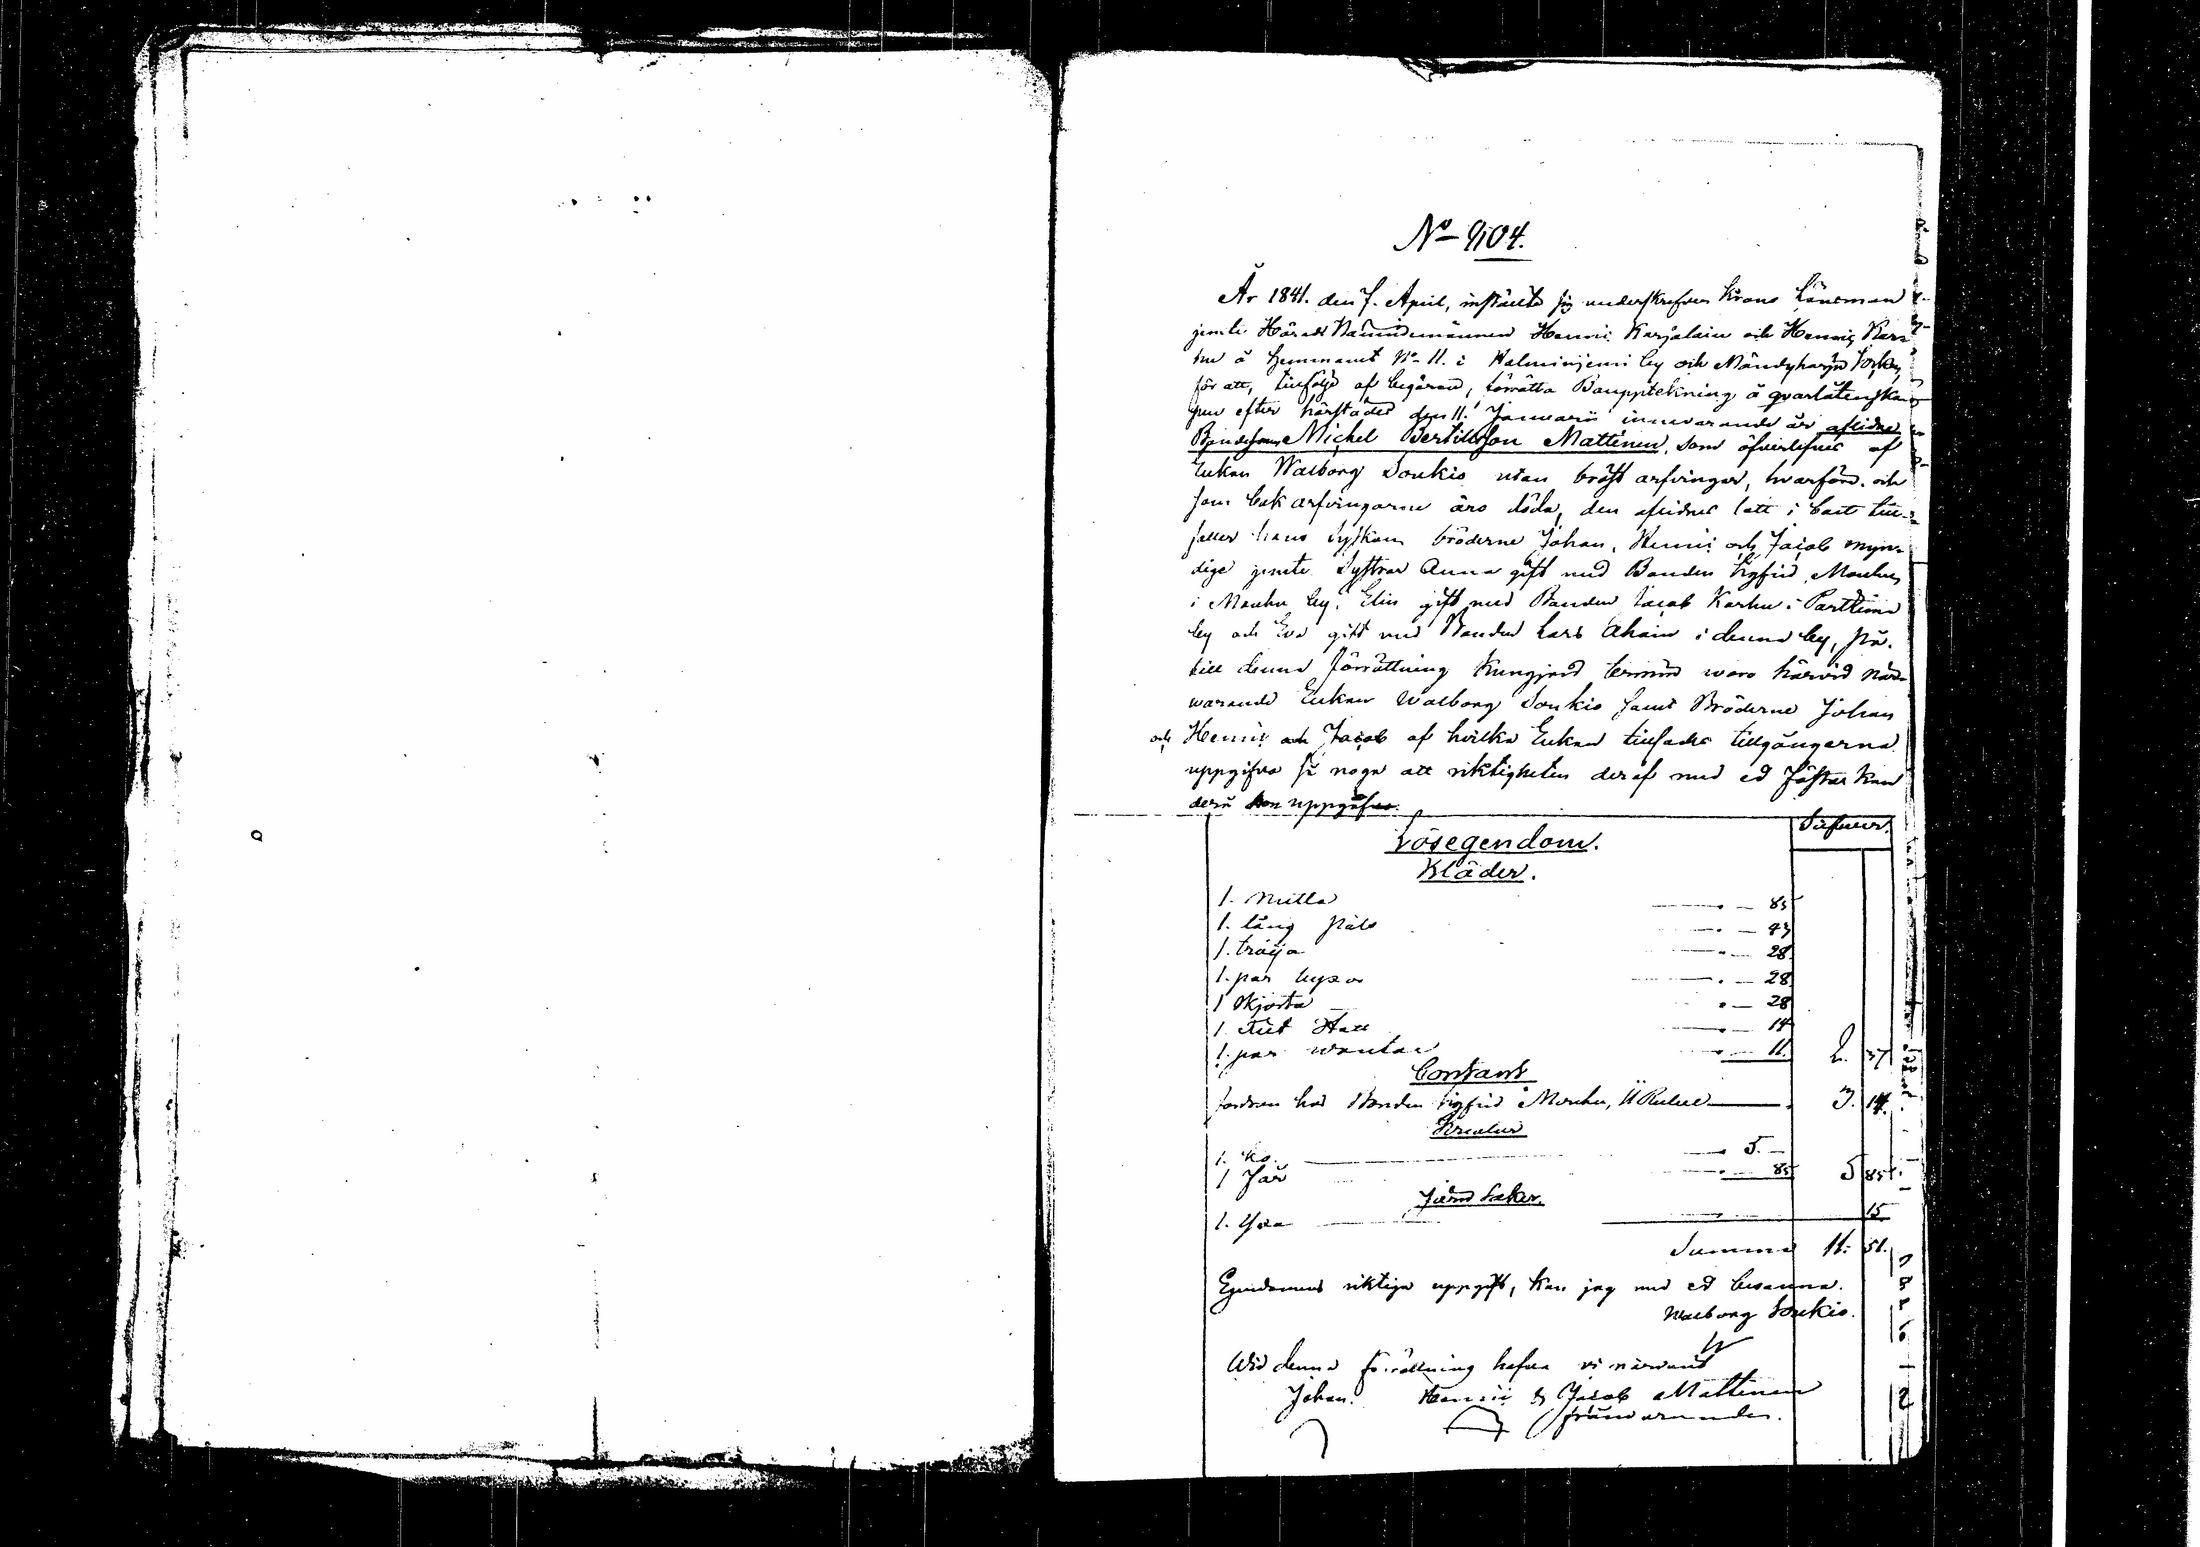 No 904.
År 1841. den 7. April, instälte sig underskrefven Krono Länsman
jemte Härads Nämndemännen Henric Karjalain och Henric Kar
å hemmanet No 11. i Halminjemi by och Mändyharju Socken
för att, tillfölje af begäran, förrätta Bouppteckning å qvarlåtenska
pen efter härstädes den 11. Januarii innevarande år aflidne
Bonden Michel Bertillsson Mattinen, som öfverlefves af
Enkan Walborg Soukio utan bröst arfvingar, hvarföre och
som bak arfvingarne äro döda, den aflidnes lott i boet till-
faller hans Syskon bröderne Johan, Henric och Jacob myn-
dige jemte Systrar Anna gift med Bonden Sigfrid Mouhu
i Mouhu by, Elin gift med Bonden Jacob Karhu i Parttima
by och Eva gift med Bonden Lars Ahain i denna by, På
till denna förrättning kungjord termin woro härvid när-
warande Enkan Walborg Soukio samt Bröderne Johan
och Henric och Jacob af hvilka Enkan tillsades tillgångarna
uppgifva så noga att riktigheten deraf med ed fästas kan
derå hon uppgafs.
Silfver.
Lösegendom.
Kläder.
1. Mutta — 85
1. lång päls — 43
1. tröija — 28
1. par byxor — 28
1 Skjorta — 28
1. Hatt — 14
1. par wantar — 11. 2. 37
Contant
fordran hos Bonden Sigfrid Mouhu, 11 Rubel — 3. 14.
Kreatur
1. ko. — 5. —
1 Får — 85 5 85
Järnd Saker.
1. Yxa — 15
Summa 11. 51.
Egendomens riktiga uppgift, kan jag med ed besanna.
Walborg Soukio.
Wid denna förrättning hafva vi närvarit
Johan. Henric & Jacob Mattinen